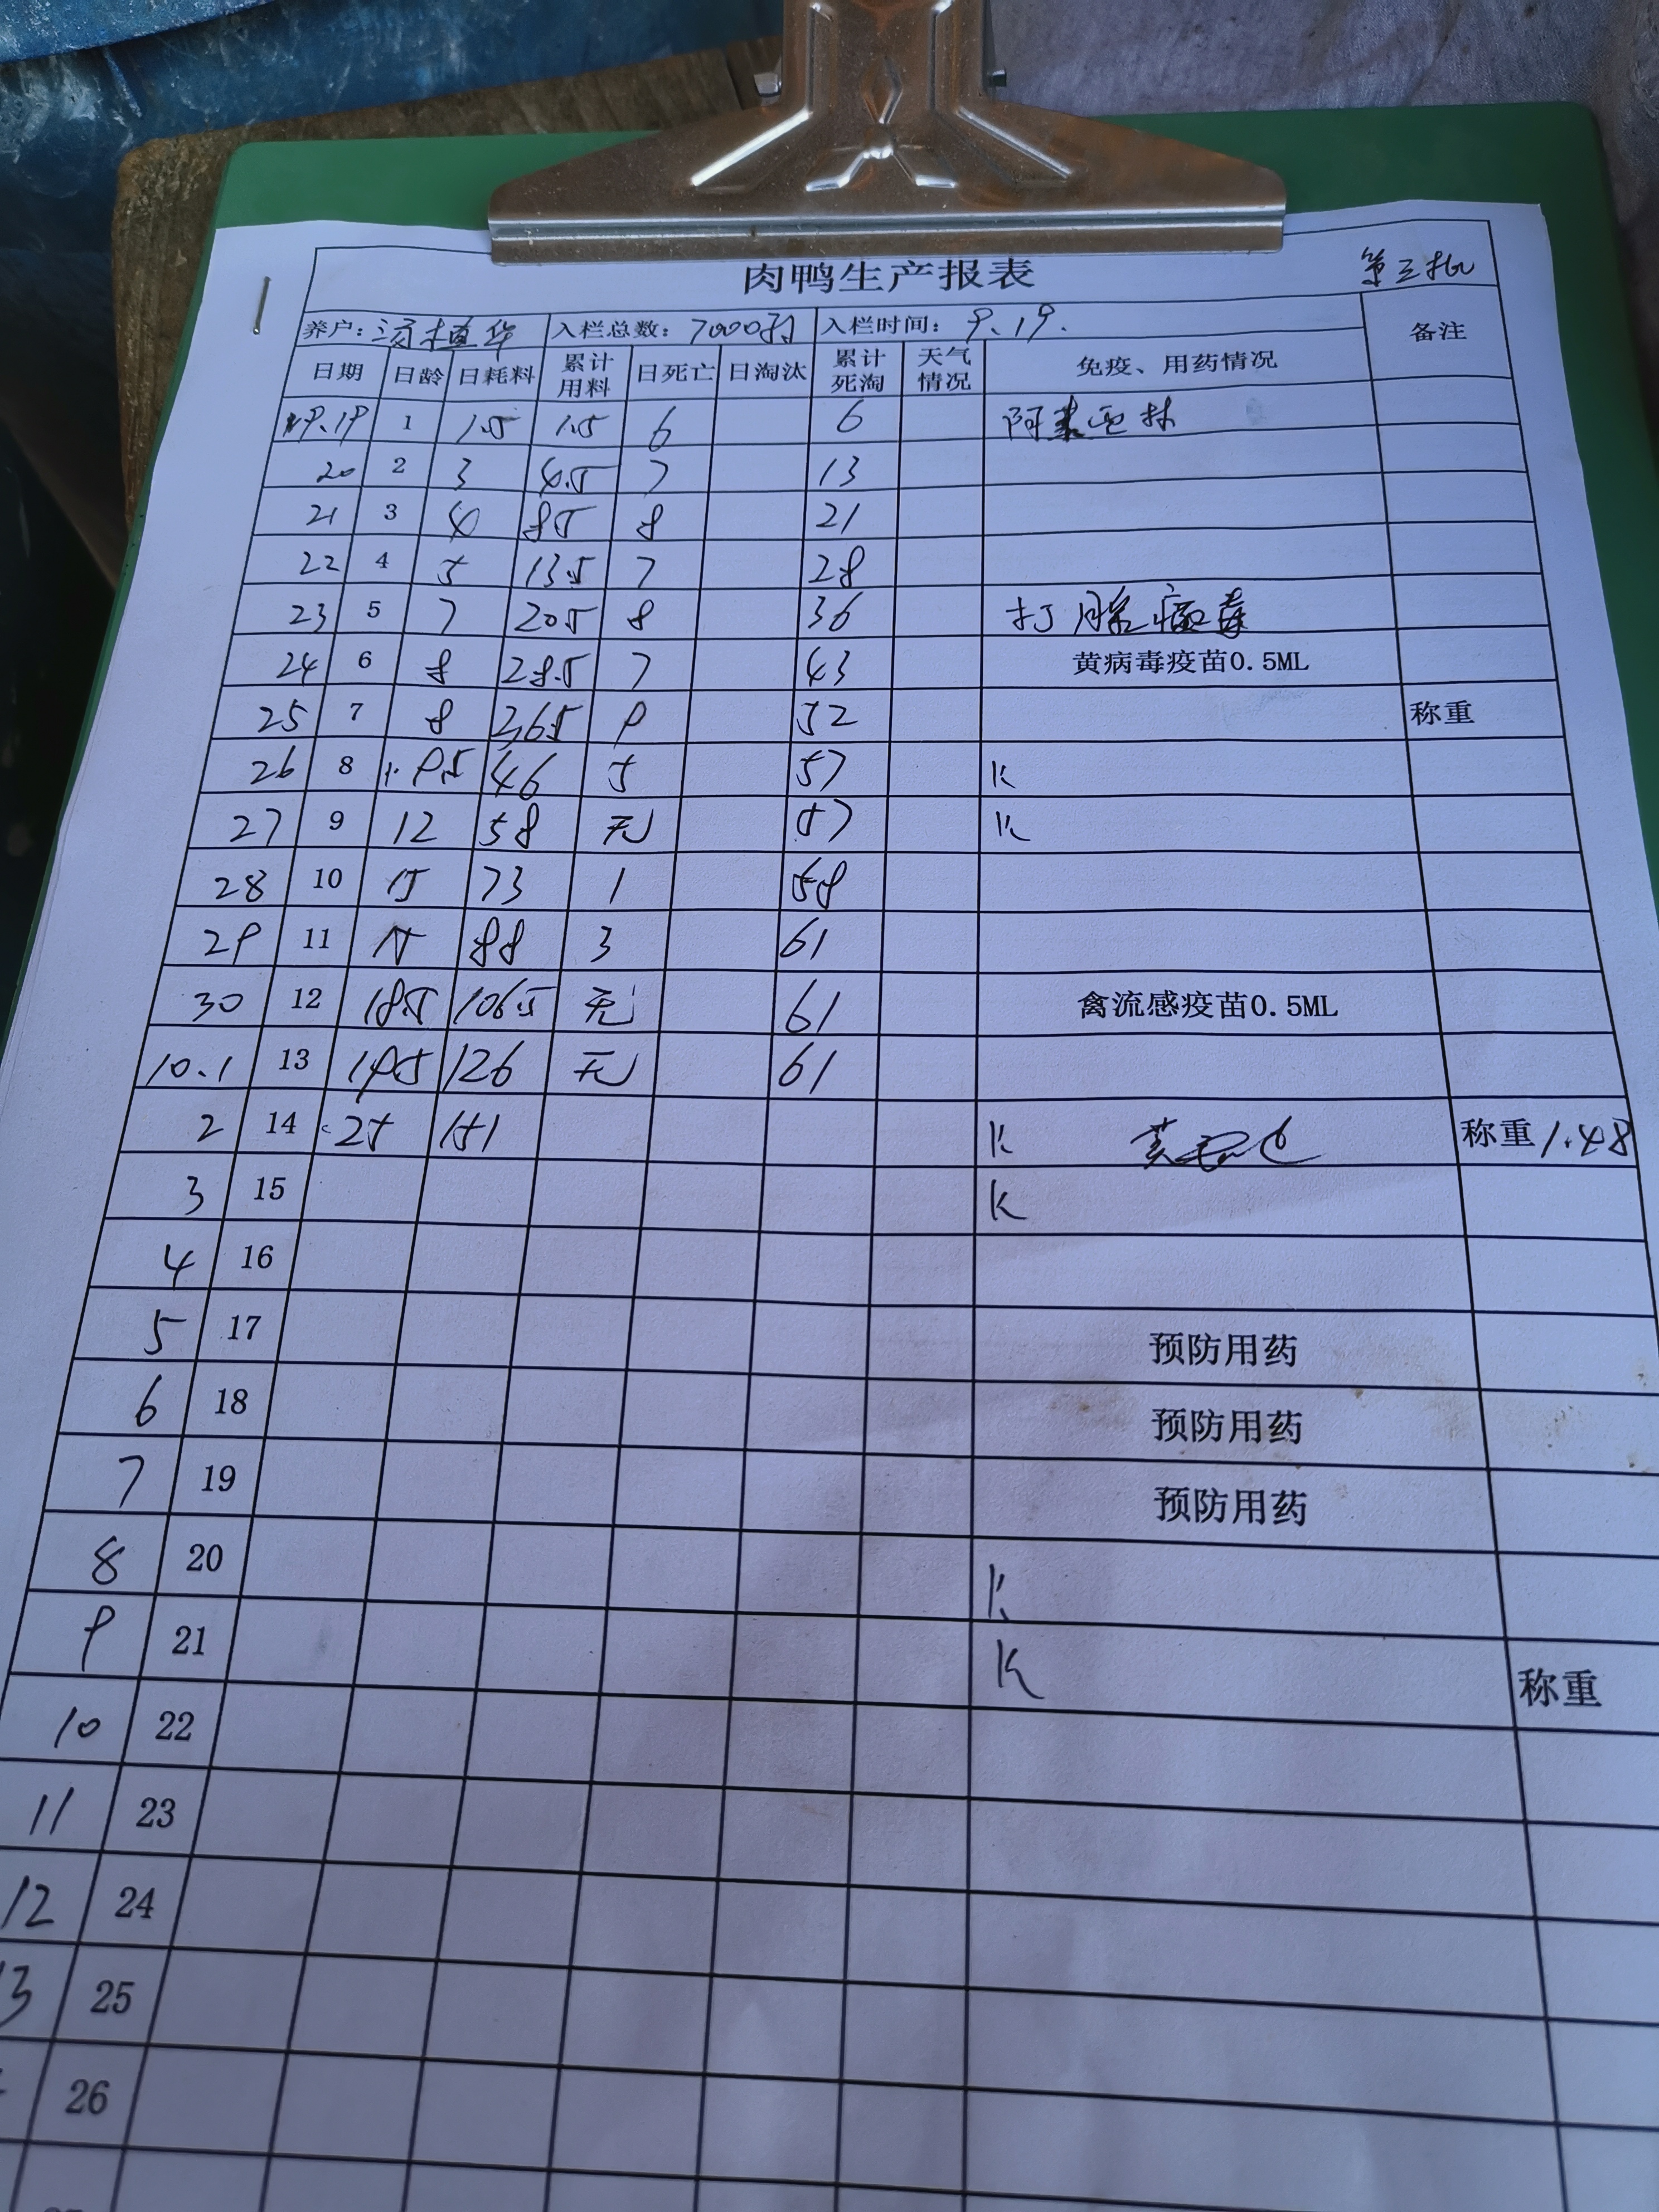 肉鸭生产报表 第三批
养户: 汤植华 入栏总数: 7000羽 入栏时间: 9.19. 备注
日期 日龄 日耗料 累计用料 日死亡 日淘汰 累计死淘 天气情况 免疫、用药情况
9.19 1 1.5 1.5 6 6 阿莫西林
20 2 3 4.5 7 13
21 3 4 8.5 8 21
22 4 5 13.5 7 28
23 5 7 20.5 8 36 打
24 6 8 28.5 7 43 黄病毒疫苗0.5ML
25 7 8 36.5 9 52 称重
26 8 9.5 46 5 57 K
27 9 12 58 无 57 K
28 10 15 73 1 58
29 11 15 88 3 61
30 12 18.5 106.5 无 61 禽流感疫苗0.5ML
10.1 13 19.5 126 无 61
2 14 25 151 K 称重 1.48
3 15 K
4 16
5 17 预防用药
6 18 预防用药
7 19 预防用药
8 20 K
9 21 K 称重
10 22
11 23
12 24
13 25
26